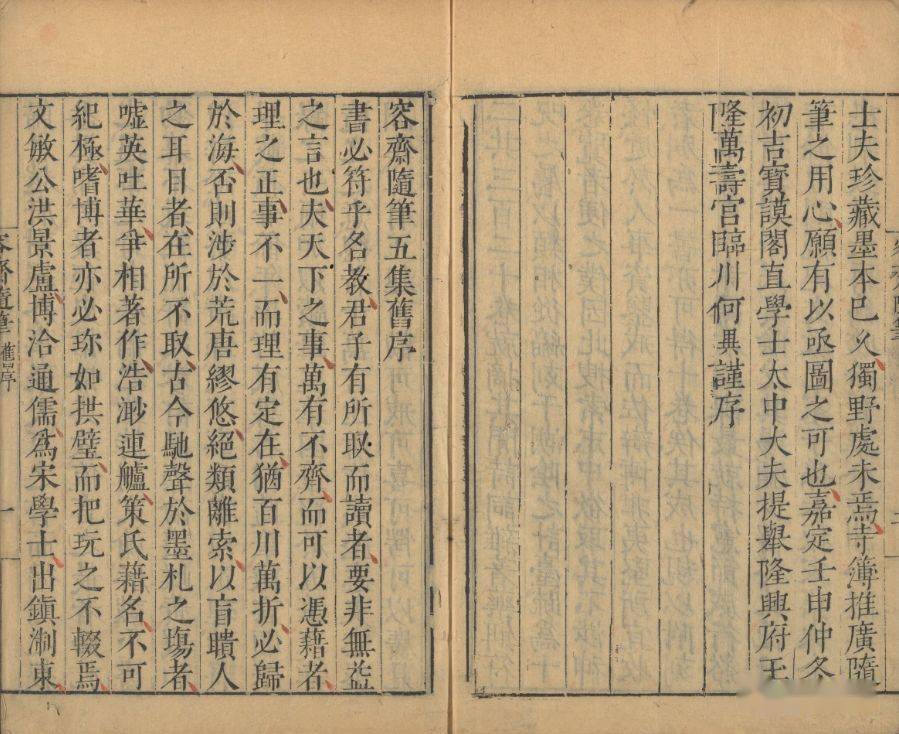 士夫珍藏墨本已久獨野處未焉寺簿推廣隨
筆之用心願有以亟圖之可也嘉定壬申仲冬
初吉寶謨閣直學士太中大夫提舉隆興府玉
隆萬壽宮臨川何異謹序
容齋隨筆
容齋隨筆五集舊序
書必符乎名教君子有所取而讀者要非無益
之言也夫天下之事萬有不齊而可以憑藉者
理之正事不一而理有定在猶百川萬折必歸
於海否則涉於荒唐繆悠絕類離索以盲聵人
之耳目者在所不取古今馳聲於墨札之場者
噓英吐華爭相著作浩渺連艫策氏藉名不可
紀極嗜博者亦必珍如拱璧而把玩之不輟焉
文敏公洪景盧博洽通儒為宋學士出鎮浙東
容齋隨筆 舊序 一